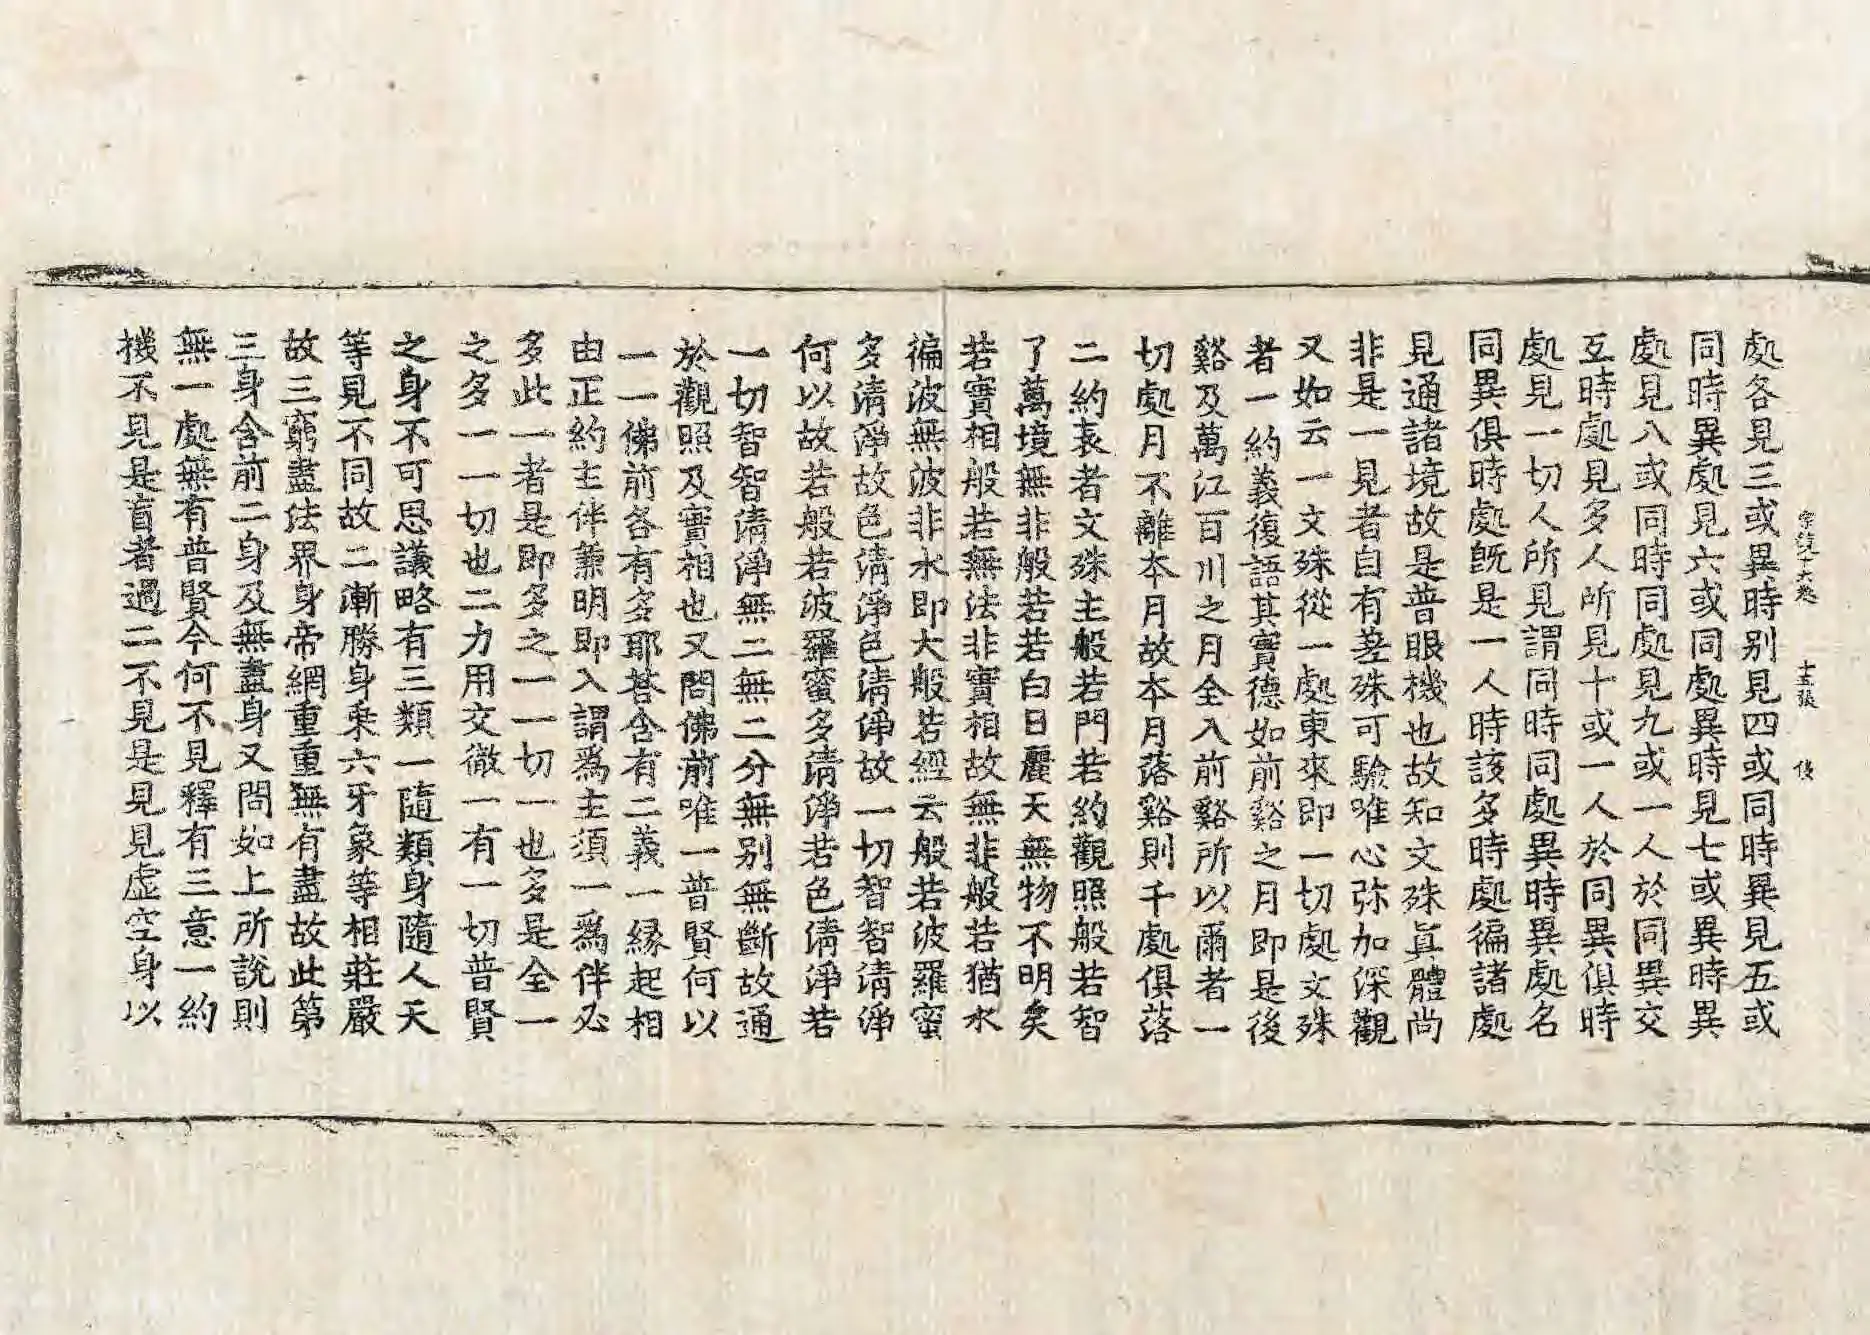 宗鏡十六卷 十五張 俊
處各見三或異時別見四或同時異見五或
同時異處見六或同處異時見七或異時異
處見八或同時同處見九或一人於同異交
互時處見多人所見十或一人於同異俱時
處見一切人所見謂同時同處異時異處名
同異俱時處旣是一人時該多時處徧諸處
見通諸境故是普眼機也故知文殊眞體尚
非是一見者自有差殊可驗唯心弥加深觀
又如云一文殊從一處東來即一切處文殊
者一約義復語其實德如前谿之月即是後
谿及萬江百川之月全入前谿所以爾者一
切處月不離本月故本月落谿則千處俱落
二約表者文殊主般若門若約觀照般若智
了萬境無非般若若白日麗天無物不明矣
若實相般若無法非實相故無非般若猶水
徧波無波非水即大般若經云般若波羅蜜
多淸淨故色淸淨色淸淨故一切智智淸淨
何以故若般若波羅蜜多淸淨若色淸淨若
一切智智淸淨無二無二分無別無斷故通
於觀照及實相也又問佛前唯一普賢何以
一一佛前各有多耶荅含有二義一緣起相
由正約主伴兼明即入謂爲主須一爲伴必
多此一者是即多之一一切一也多是全一
之多一一切也二力用交徹一有一切普賢
之身不可思議略有三類一隨類身隨人天
等見不同故二漸勝身乘六牙象等相莊嚴
故三窮盡法界身帝網重重無有盡故此第
三身含前二身及無盡身又問如上所說則
無一處無有普賢今何不見釋有三意一約
機不見是盲者過二不見是見見虛空身以